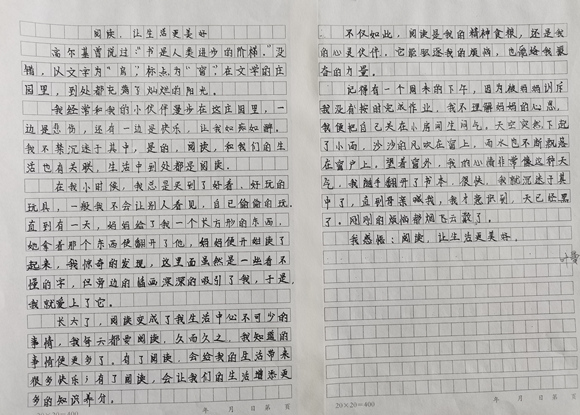 阅读，让生活更美好
高尔基曾说过"书是人类进步的阶梯。"没
错，以文字为"宫"，标点为"窗"，在文学的庄
园里，到处都充满了灿烂的阳光。
我经常和我的小伙伴漫步在这庄园里，一
边是悲伤，还有一边是快乐，让我如痴如醉。
我不禁沉迷于其中，是的，阅读，和我们的生
活也有关联，生活中到处都是阅读。
在我小时候，我总是买到了好看，好玩的
玩具，一般我不会让别人看见，自已偷偷的玩，
直到有一天，妈妈给了我一个长方形的东西，
她拿着那个东西使翻开了他，妈妈使开始读了
起来，我惊奇的发现，这里面虽然是一些看不
懂的字，但旁边的插画深深的吸引了我，于是，
我就爱上了它。
长大了，阅读变成了我生活中心不可少的
事情，我每天都要阅读，久而久之，我知道的
事情便更多了。有了阅读，会给我的生活带来
很多快乐；有了阅读，会让我们的生活增添更
多的知识养分。
20×20=400
年 月 日 第 页
不仅如此，阅读是我的精神食粮，还是我
的心灵伙伴。它驱驱逐我的烦恼，也带给我最
奋的力量。
记得有一个周末的下午，因为被妈妈训斥
我没有按时完成作业，我不理解妈妈的心思，
我便把自己关在小房间生闷气。天空突然下起
了小雨，沙沙的风吹在窗上，雨水也不断就落
在窗户上，望着窗外，我的心情非常像这种天
气，我随手翻开了书本，很快，我就沉迷于其
中了，直到母亲喊我，我才意识到，天已经黑
了。刚刚的烦恼都烟飞云散了。
我感悟：阅读，让生活更美好。
20×20=400
年 月 日 第 页